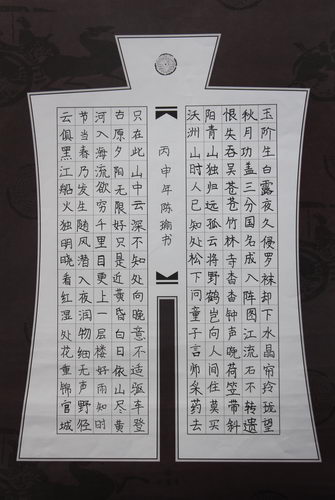 玉阶生白露夜久侵罗袜却下水晶帘玲珑望
秋月功盖三分国名成八阵图江流石不转遗
恨失吞吴苍苍竹林寺杳杳钟声晚荷笠带斜
阳青山独归远孤云将野鹤岂向人间住莫买
沃洲山时人已知处松下问童子言师采药去
丙申年陈瑜书
只在此山中云深不知处向晚意不适驱车登
古原夕阳无限好只是近黄昏白日依山尽黄
河入海流欲穷千里目更上一层楼好雨知时
节当春乃发生随风潜入夜润物细无声野径
云俱黑江船火独明晓看红湿处花重锦官城